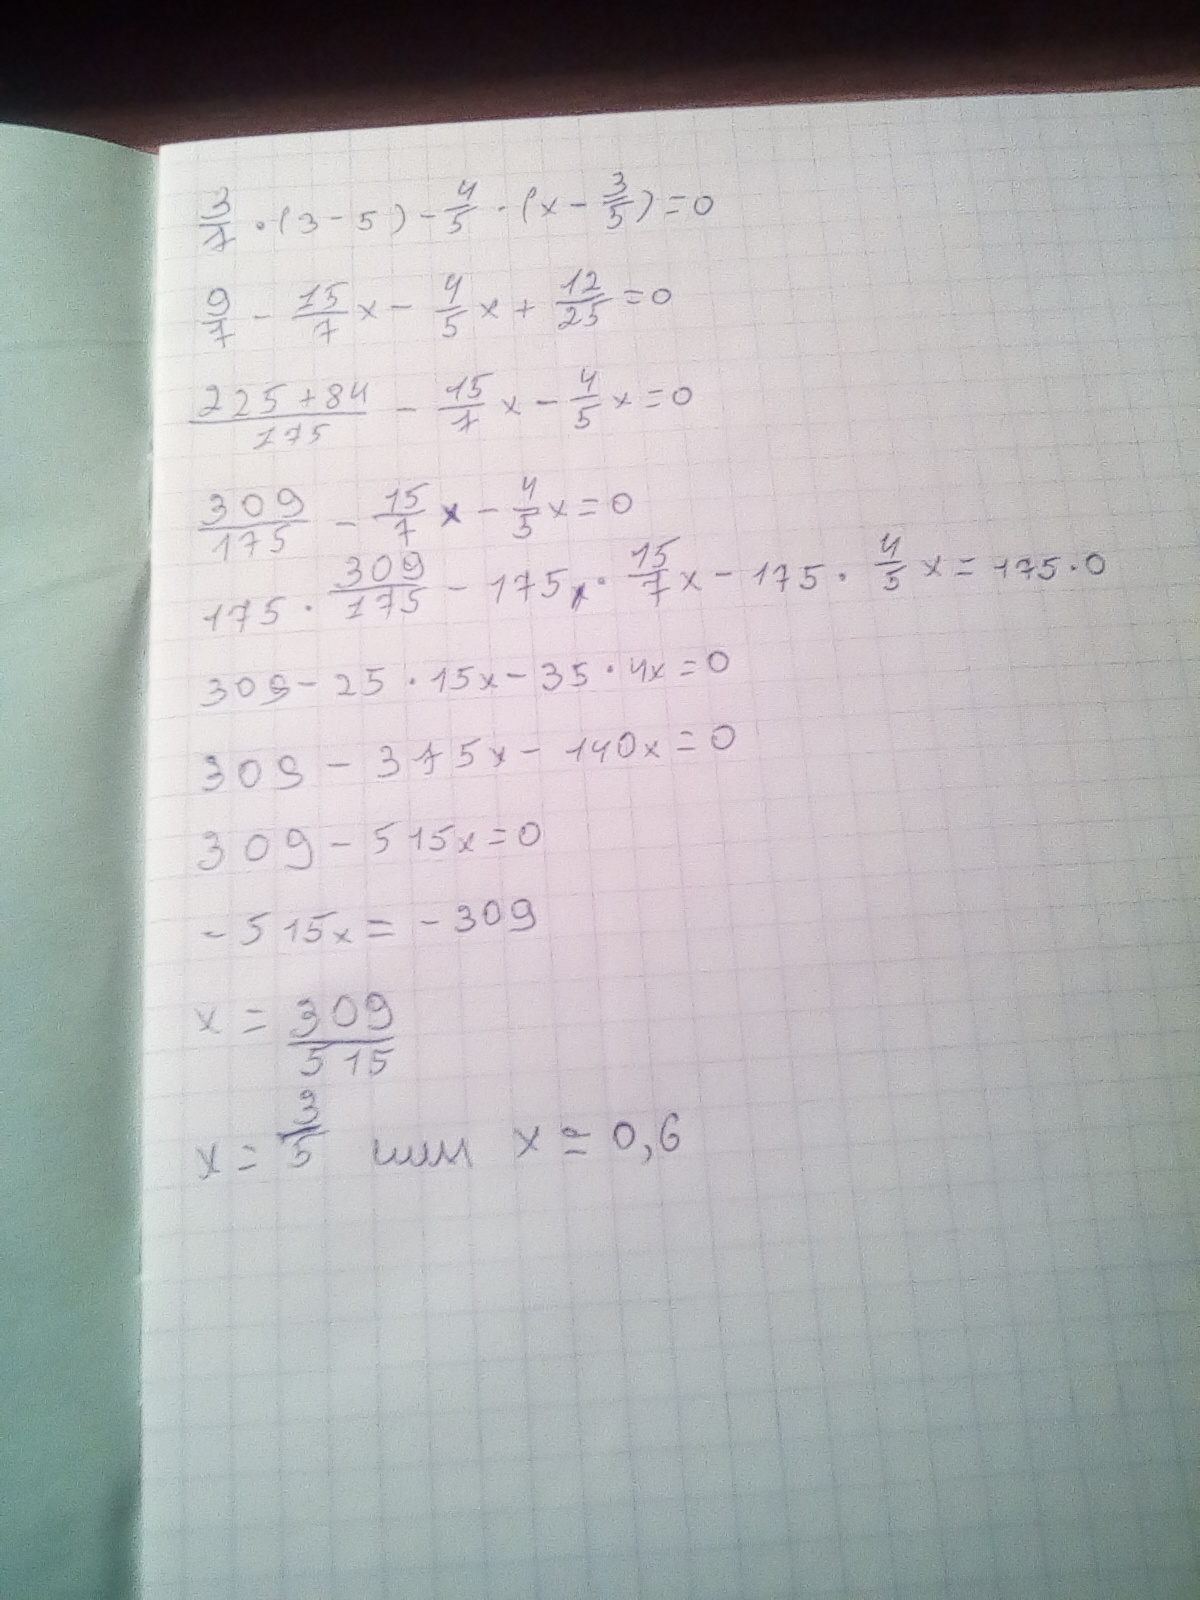 3/7 · (3 - 5) - 4/5 · (x - 3/5) = 0
9/7 - 15/7 x - 4/5 x + 12/25 = 0
225 + 84/175 - 15/7 x - 4/5 x = 0
309/175 - 15/7 x - 4/5 x = 0
175 · 309/175 - 175 · 15/7 x - 175 · 4/5 x = 175 · 0
309 - 25 · 15x - 35 · 4x = 0
309 - 375x - 140x = 0
309 - 515x = 0
- 515x = - 309
x = 309/515
x = 3/5 или x = 0,6